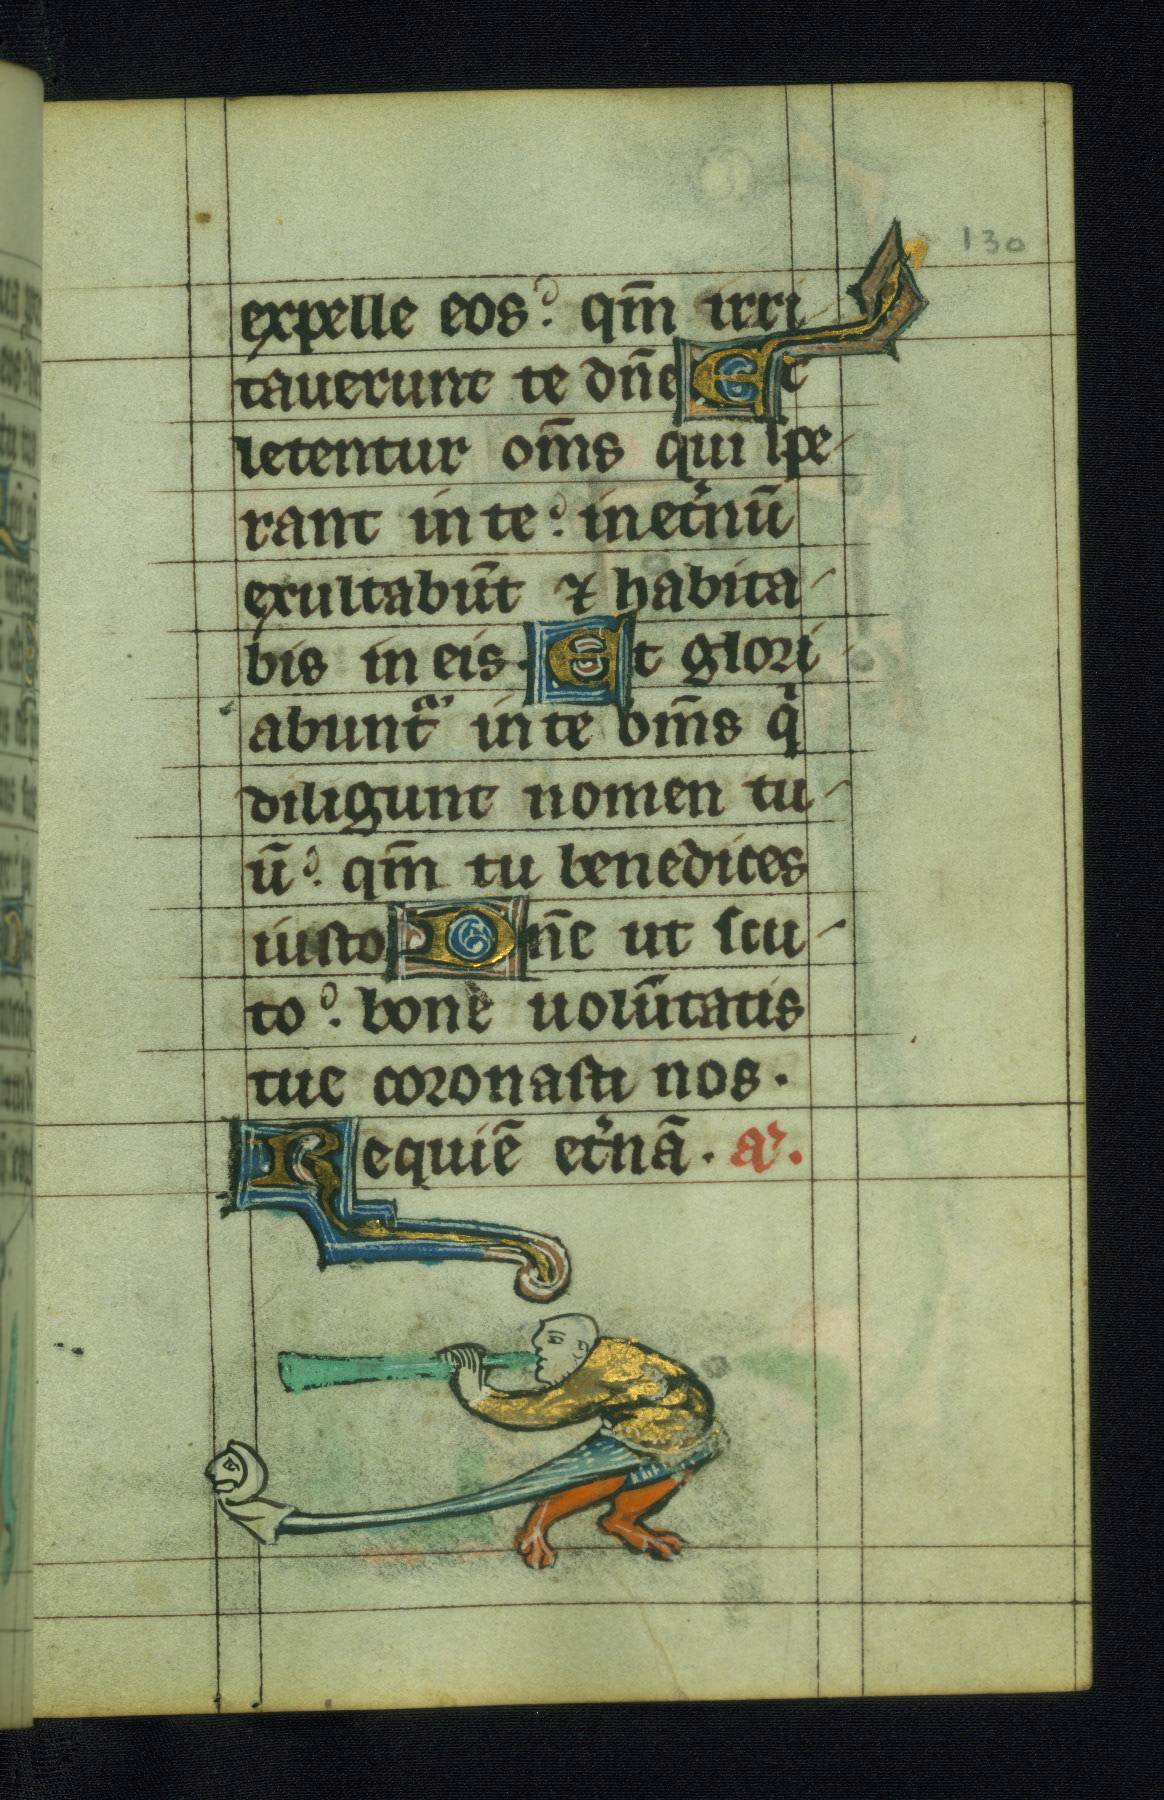 130
expelle eos. qm̄ irri
tauerunt te dn̄e Et
letentur om̄s qui spe
rant in te. in et̾nū
exultabūt ⁊ habita
bis in eis. Et glori
abuntᷓ in te om̄s qͥ
diligunt nomen tu
ū. qm̄ tu benedices
iusto Dn̄e ut scu
to. bone uolūtatis
tue coronasti nos.
Requiē et̾nā. a͛.